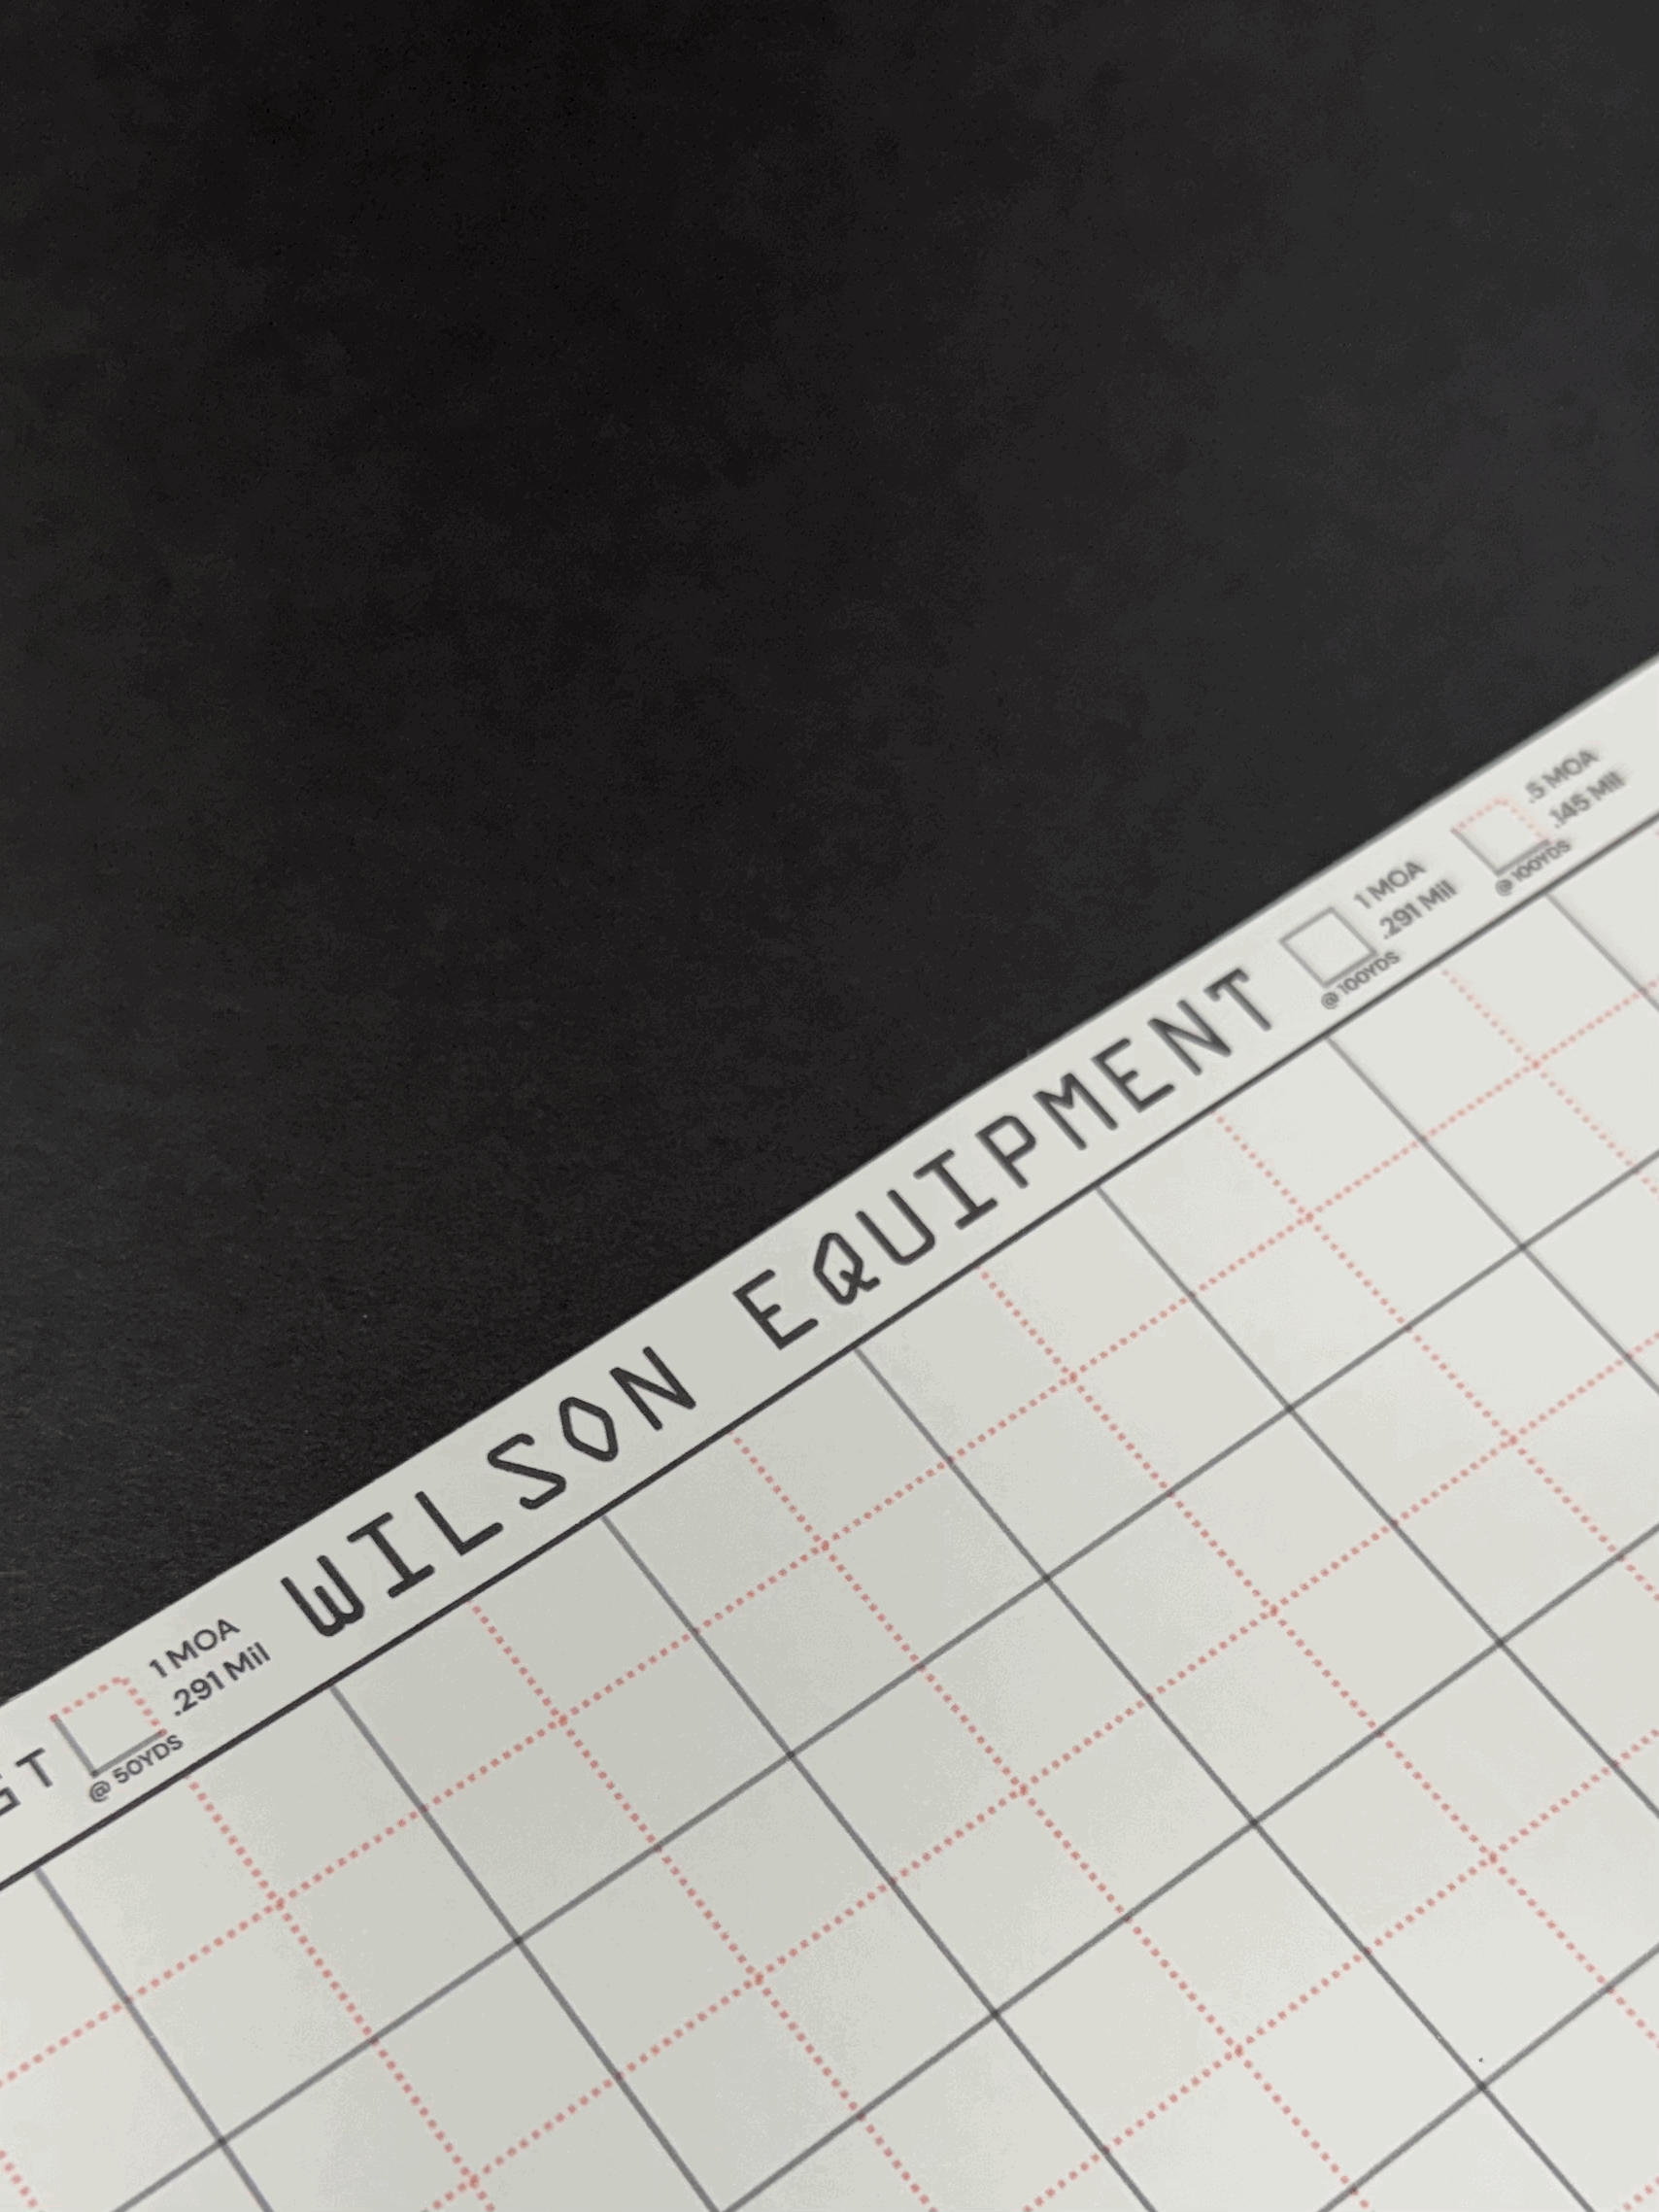 1 MOA
.291 Mil
@ 50YDS
WILSON EQUIPMENT
1 MOA
.291 Mil
@ 100YDS
.5 MOA
.145 Mil
@ 100YDS